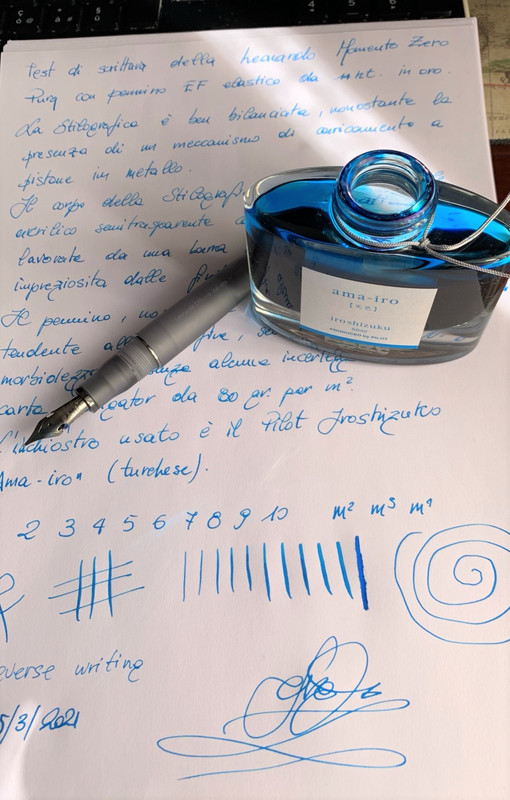 Test di scrittura della Leonardo Momento Zero
Pura con pennino EF elastico da 14 kt. in oro.
La Stilografica è ben bilanciata, nonostante la
presenza di un meccanismo di caricamento a
pistone in metallo.
Il corpo della Stilografi
acrilico semitrasparente
lavorate da una barra
impreziosita dalle fini
Il pennino, no
tendente all fine, se
morbidezza senza alcuna incertez
carta gator da 80 gr. per m²
L'inchiostro usato è il Pilot Iroshizuku
Ama-iro" (turchese).
2 3 4 5 6 7 8 9 10 m² m³ m⁴
everse writing
5/3/2021
ama-iro
iroshizuku
50ml
PRODUCED by PILOT